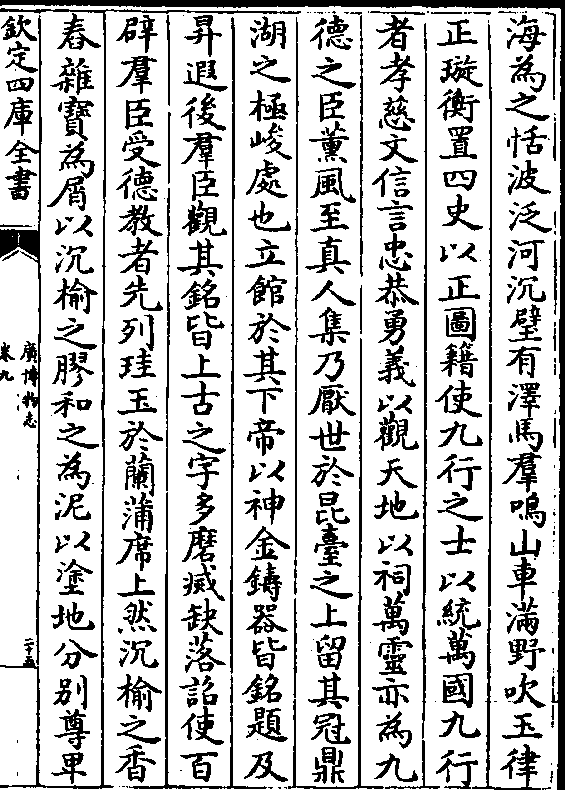 海為之恬波泛河沉璧有澤馬羣鳴山車滿野吹玉律
正璇衡置四史以正圖籍使九行之士以統萬國九行
者孝慈文信言忠恭勇義以觀天地以祠萬靈亦為九
德之臣薫風至真人集乃厭世於昆臺之上留其冠鼎
湖之極峻處也立館於其下帝以神金鑄器皆銘題及
昇遐後羣臣觀其銘皆上古之字多磨烕缺落詔使百
辟羣臣受德教者先列珪玉於蘭蒲席上然沉榆之香
舂雜寶為屑以沉榆之膠和之為泥以塗地分别尊卑
欽定四庫全書
廣博物志
卷九
二十五